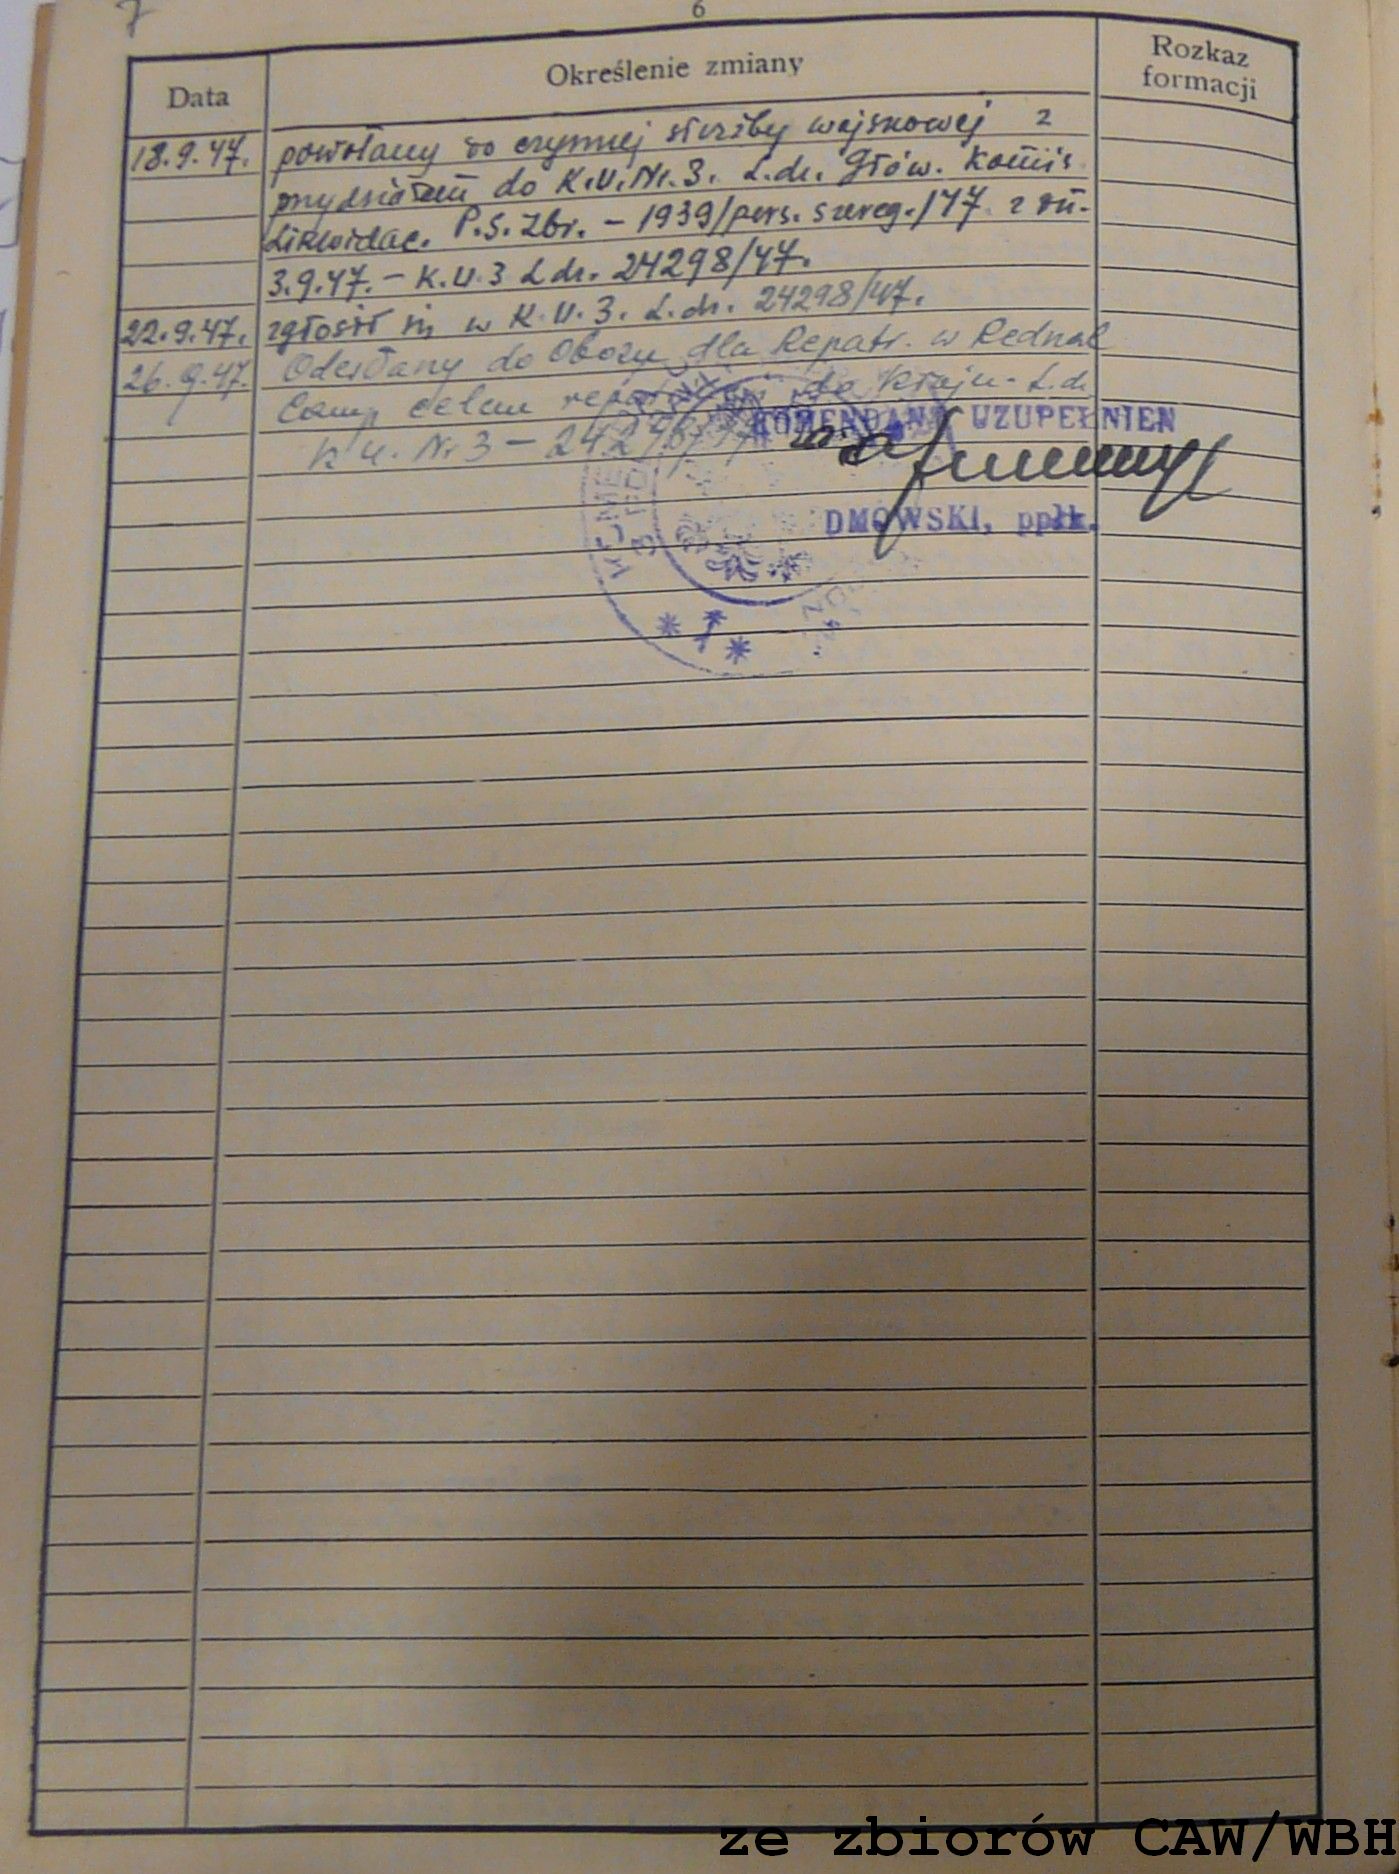 7
6
Data
Określenie zmiany
Rozkaz
formacji
18.9.47. powołany do czynnej służby wojskowej z
przydziałem do K.U.Nr.3. L.dz. Głów. Komis.
Likwidac. P.S.Zbr. - 1939/pers. szereg./47 z dn.
3.9.47. - K.U.3 L.dz. 24298/47.
22.9.47. zgłosił się w K.U.3. L.dz. 24298/47.
26.9.47. Odesłany do Obozu dla Repatr. w Rednal
Camp celem repatriacji do Kraju - L.dz.
K.U. Nr 3 - 24298/47
KOMENDANT UZUPEŁNIEN
DMOWSKI, ppłk.
ze zbiorów CAW/WBH